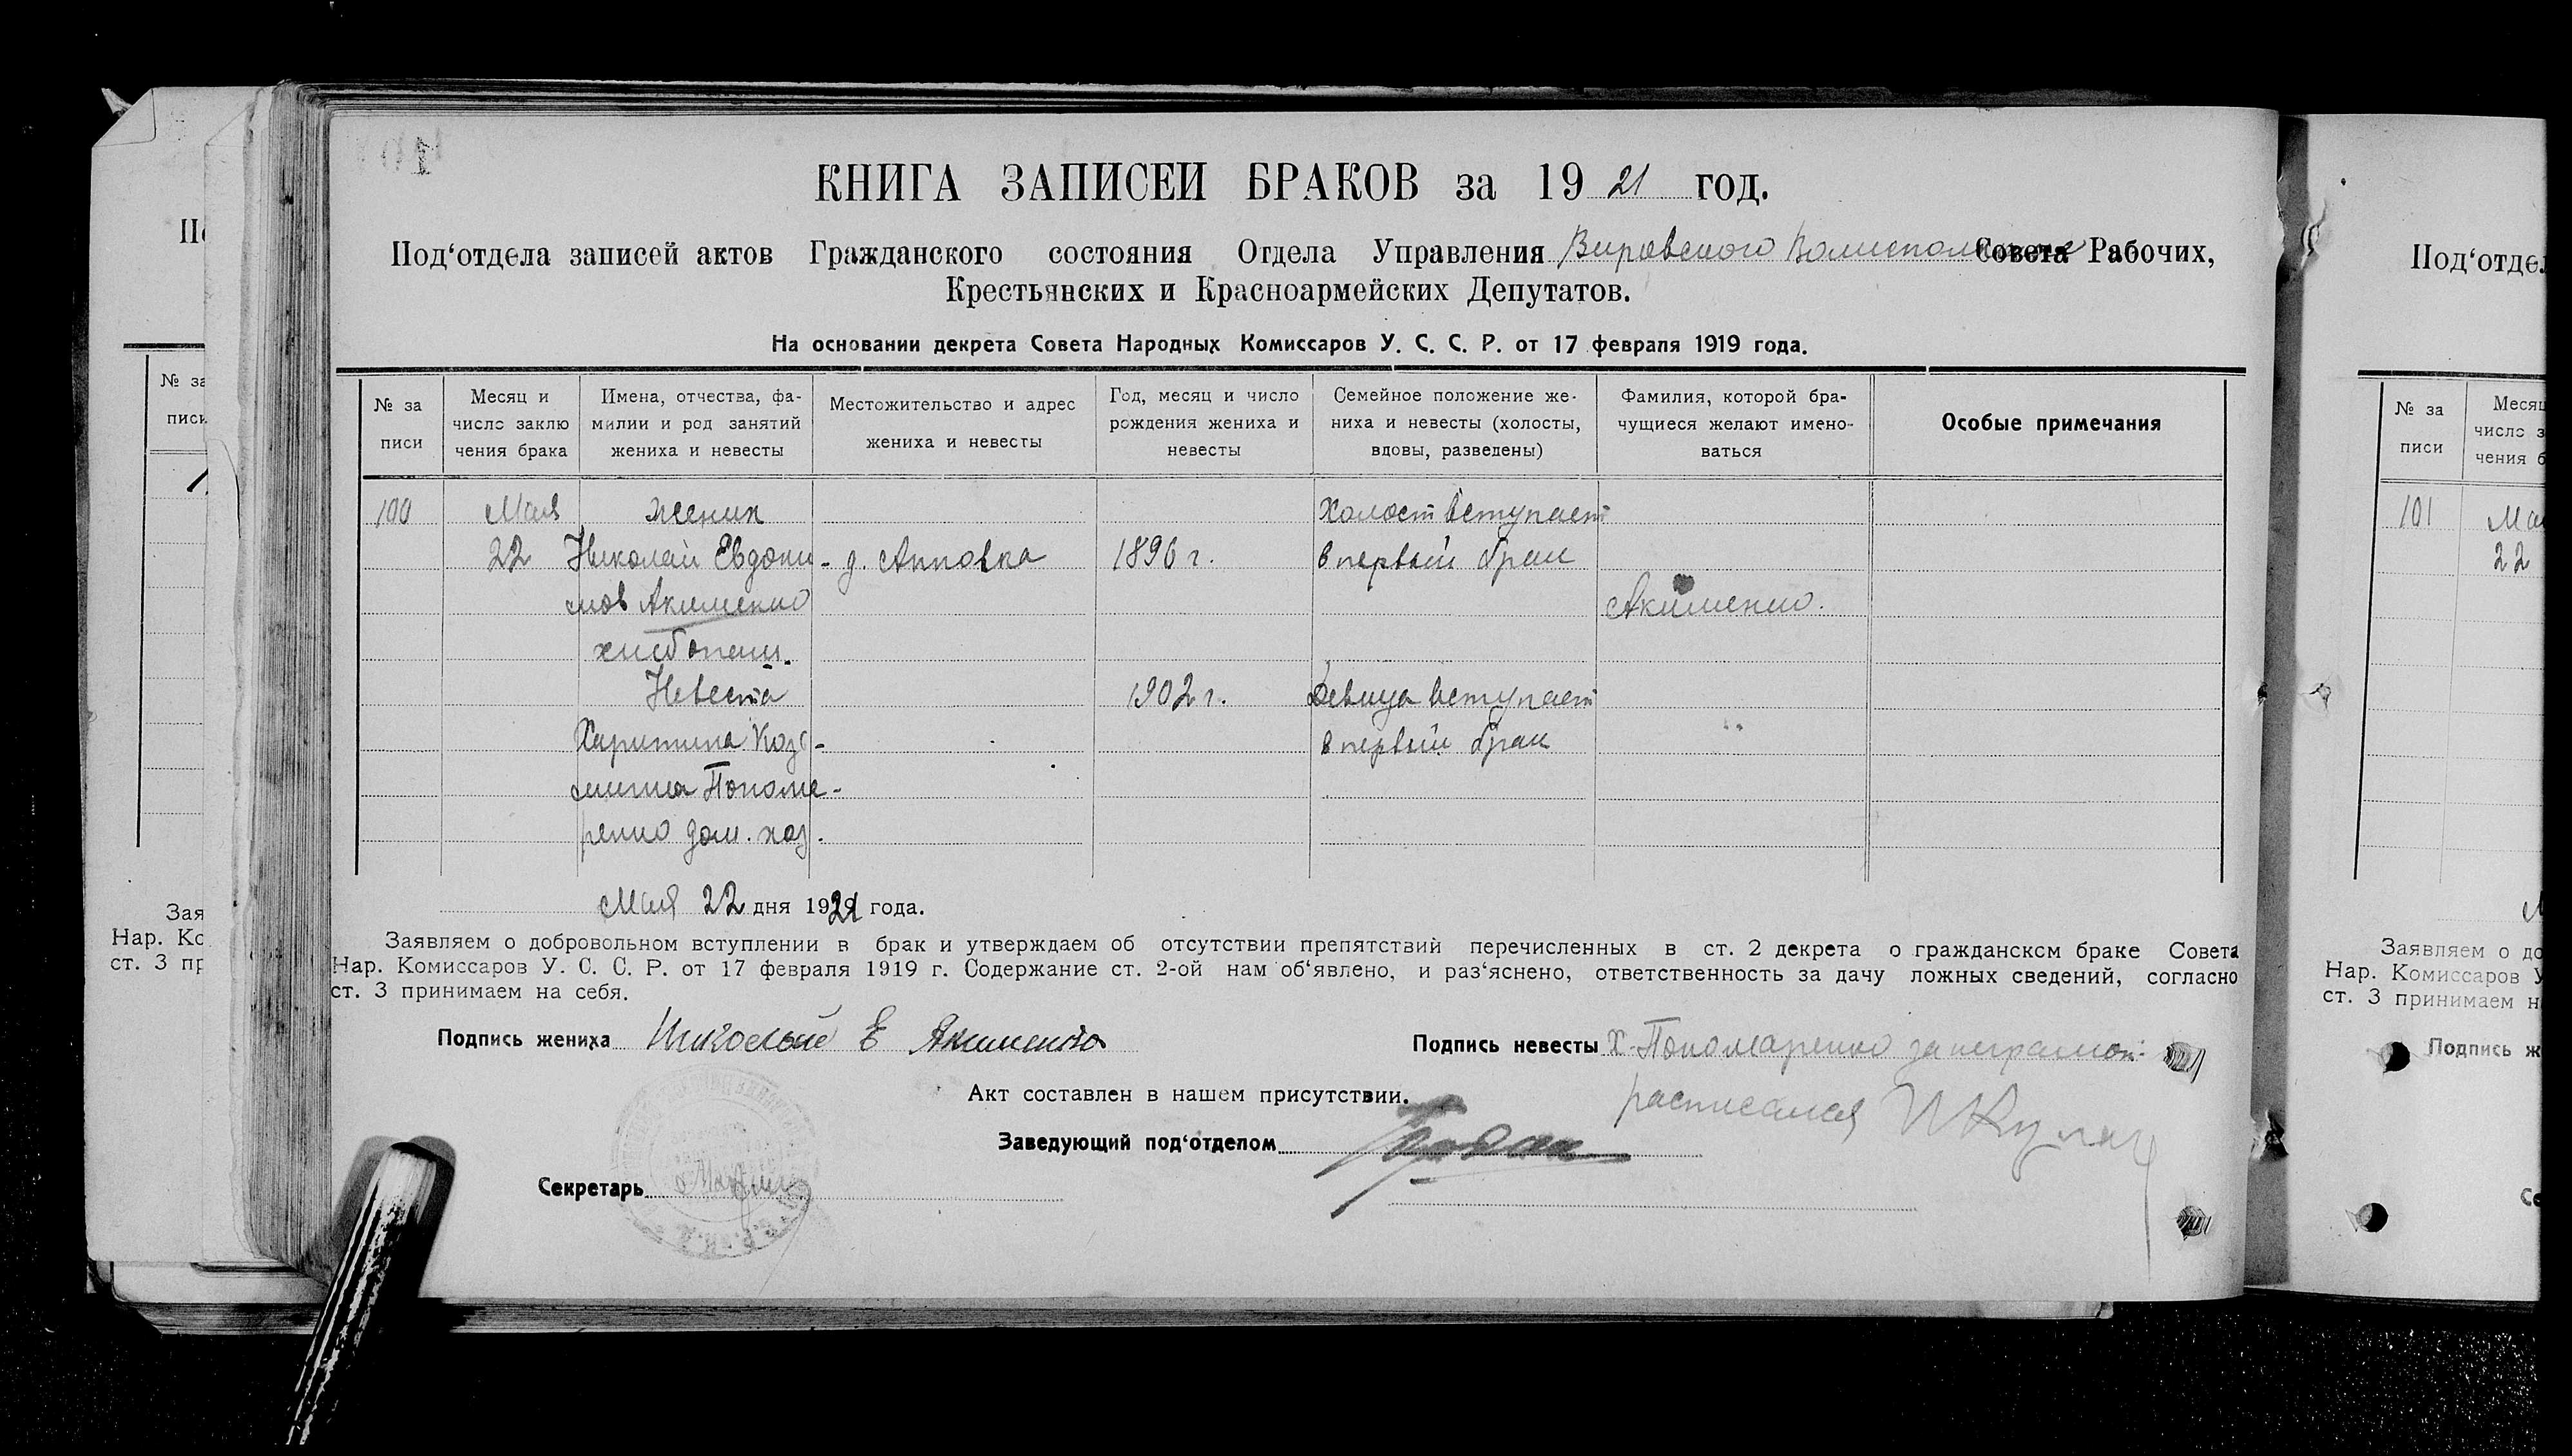 КНИГА ЗАПИСЕЙ БРАКОВ за 1921 год.
Под‘отдела записей актов Гражданского состояния Отдела Управления Вировского Волисполкома Совета Рабочих,
Крестьянских и Красноармейских Депутатов.
На основании декрета Совета Народных Комиссаров У. С. С. Р. от 17 февраля 1919 года.
№ за
писи
Месяц и
число заклю
чения брака
Имена, отчества, фа-
милии и род занятий
жениха и невесты
Местожительство и адрес
жениха и невесты
Год, месяц и число
рождения жениха и
невесты
Семейное положение же-
ниха и невесты (холосты,
вдовы, разведены)
Фамилия, которой бра-
чущиеся желают имено-
ваться
Особые примечания
100 Мая жених Холост вступает
22 Николай Евдоки- д. Анновка 1896 г. в первый брак
мов Акименко Акименко.
хлебопаш.
Невеста 1902 г. Девица вступает
Харитина Козь- в первый брак "
мина Пономе-
ренко дом. хоз.
Мая 22 дня 1921 года.
Заявляем о добровольном вступлении в брак и утверждаем об отсутствии препятствий перечисленных в ст. 2 декрета о гражданском браке Совета
Нар. Комиссаров У. С. С. Р. от 17 февраля 1919 г. Содержание ст. 2-ой нам об‘явлено, и раз‘яснено, ответственность за дачу ложных сведений, согласно
ст. 3 принимаем на себя.
Подпись жениха Николай Е Акименко
Подпись невесты Х. Пономаренко за неграмот.
расписался
Акт составлен в нашем присутствии.
Заведующий под‘отделом
Секретарь
№ за
писи
101 Ма
22
Под‘отде
Месяц
число з
чения б
Заявляем о до
Нар. Комиссаров У
ст. 3 принимаем н
Подпись ж
Се
№ за
писи
Зая
Нар. Ко
ст. 3 пр